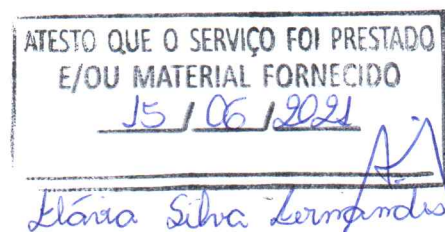 ATESTO QUE O SERVIÇO FOI PRESTADO
E/OU MATERIAL FORNECIDO
15 / 06 / 2021
Flávia Silva Fernandes